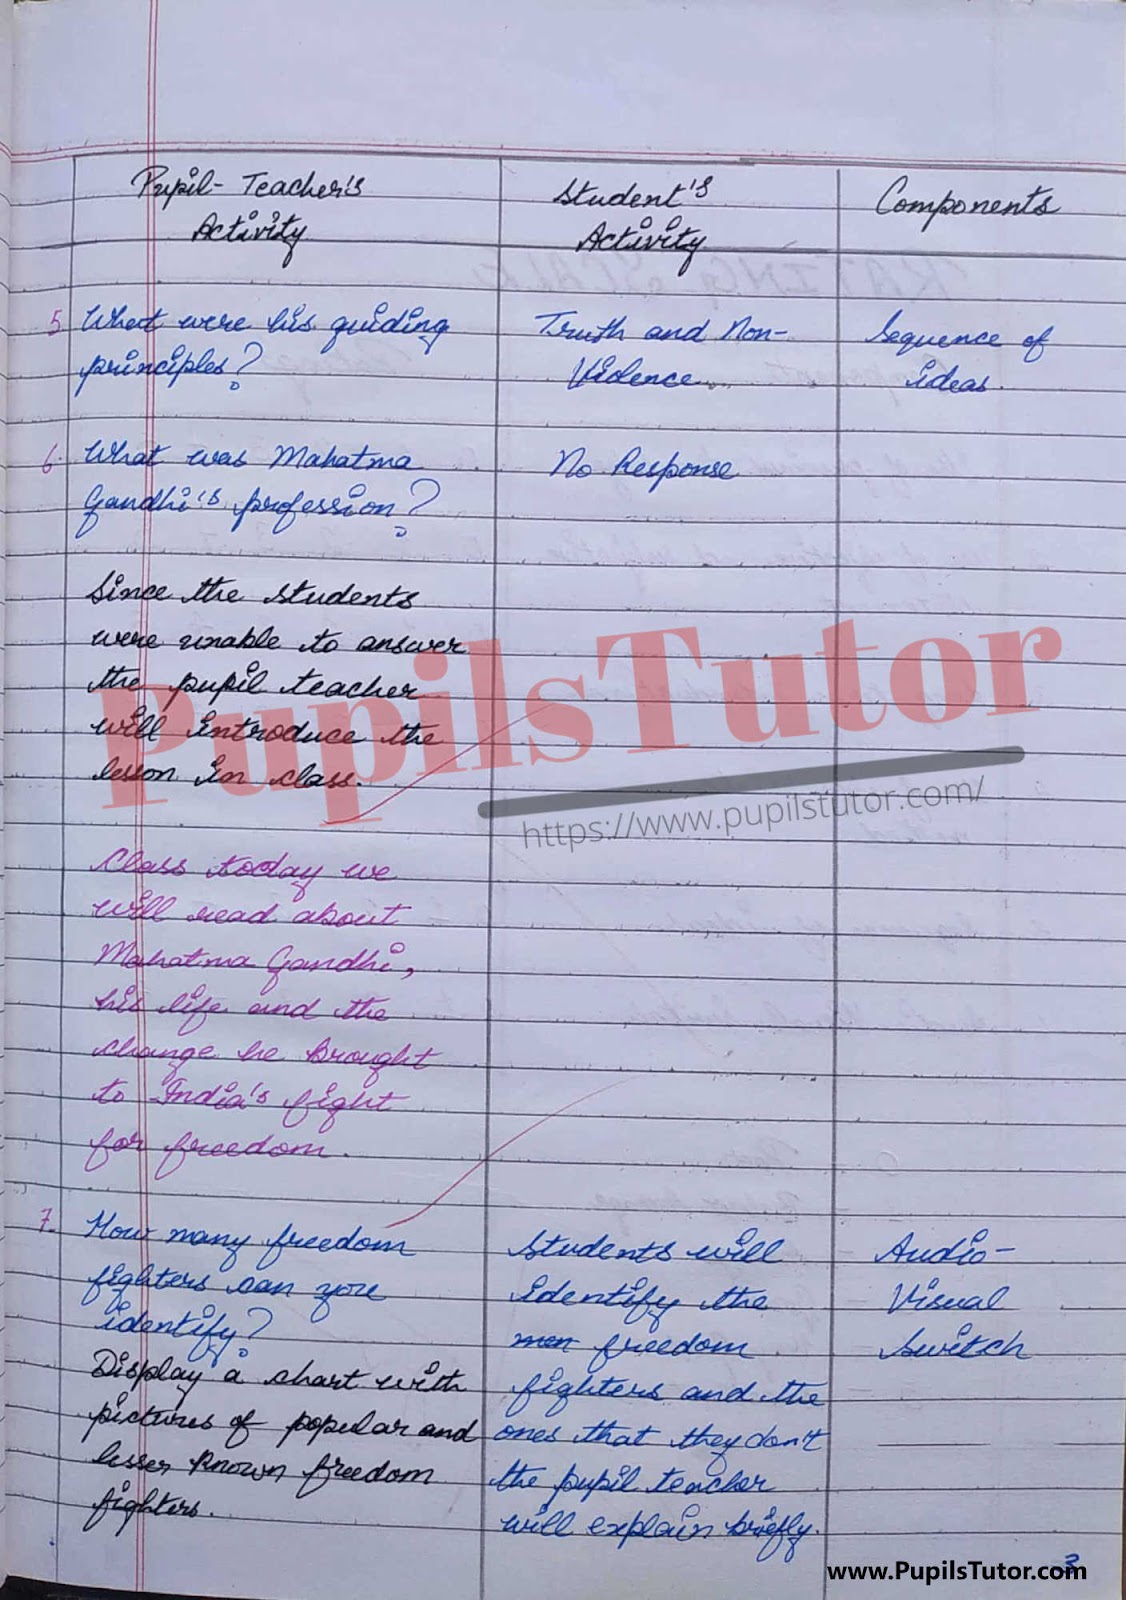 Pupil-Teacher's
Activity
Student's
Activity
Components
5 What were his guiding
principles?
Truth and Non-
Violence.
Sequence of
ideas.
6. What was Mahatma
Gandhi's profession?
No Response
Since the students
were unable to answer
the pupil teacher
will introduce the
lesson in class.
PupilsTutor
https://www.pupilstutor.com/
Class today we
will read about
Mahatma Gandhi,
his life and the
change he brought
to India's fight
for freedom.
7. How many freedom
fighters can you
identify?
Display a chart with
pictures of popular and
lesser known freedom
fighters.
Students will
identify the
men freedom
fighters and the
ones that they don't
the pupil teacher
will explain briefly.
Audio-
Visual
Switch
3
www.PupilsTutor.com